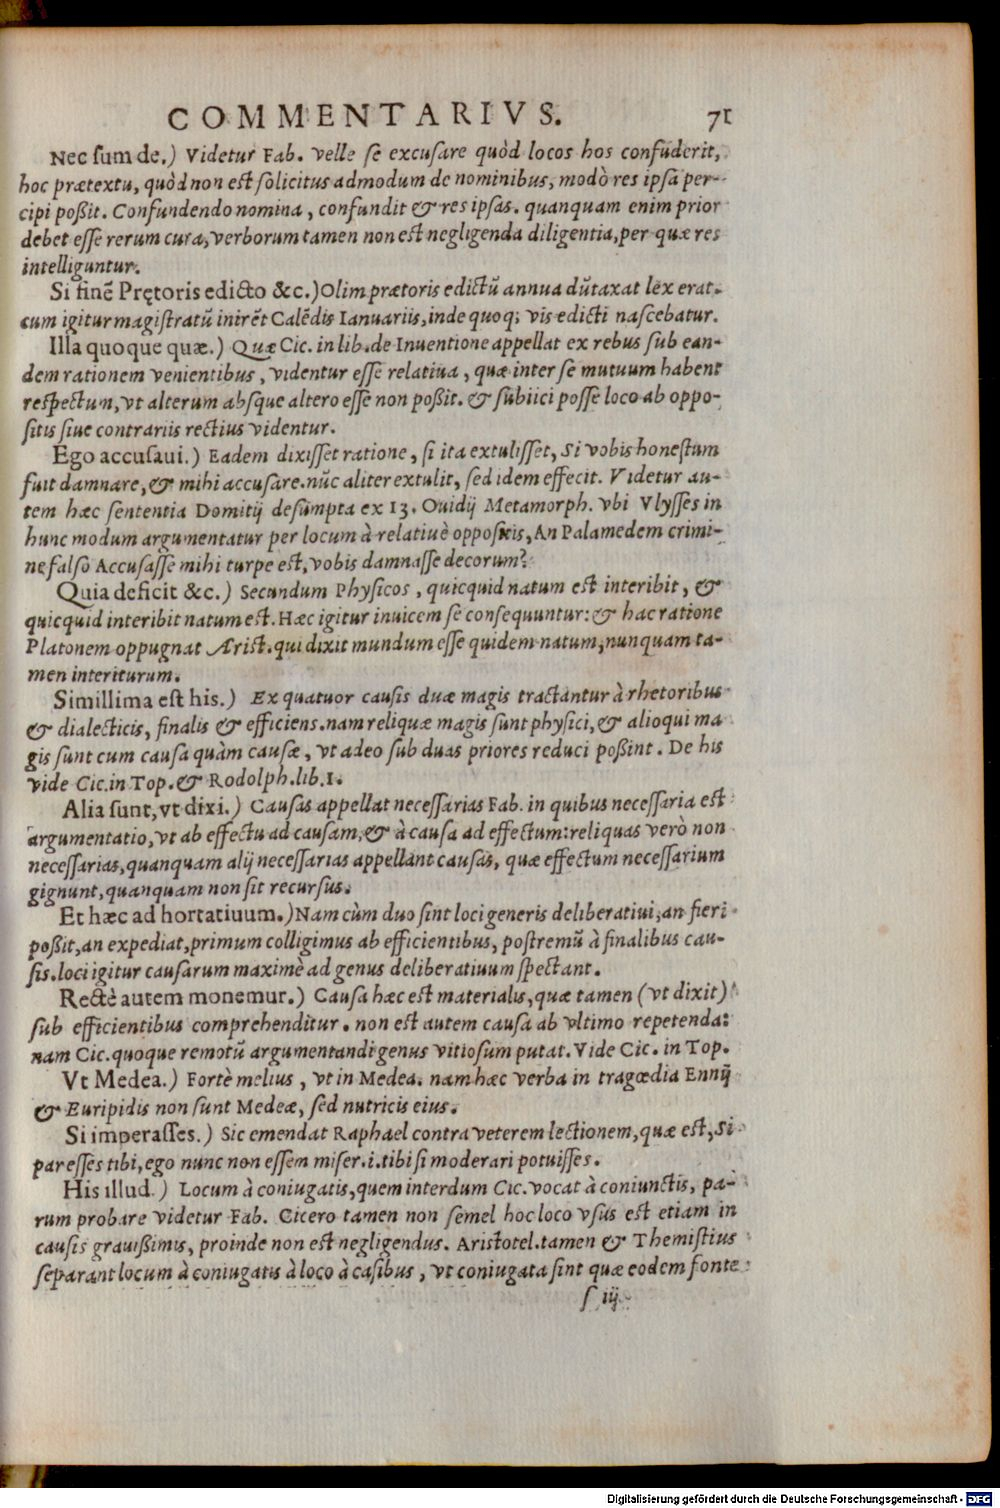 COMMENTARIVS. 71
Nec sum de.) Videtur Fab. velle se excusare quòd locos hos confuderit,
hoc prætextu, quòd non est solicitus admodum de nominibus, modò res ipsa per-
cipi poßit. Confundendo nomina, confundit & res ipsas. quanquam enim prior
debet esse rerum cura, verborum tamen non est negligenda diligentia, per quæ res
intelliguntur.
Si finē Prętoris edicto &c.) Olim prætoris edictū annua dūtaxat lex erat.
cum igitur magistratū inirēt Calēdis Ianuariis, inde quoq; vis edicti nascebatur.
Illa quoque quæ.) Quæ Cic. in lib. de Inuentione appellat ex rebus sub ean-
dem rationem venientibus, videntur esse relatiua, quæ inter se mutuum habent
respectum, vt alterum absque altero esse non poßit. & subiici posse loco ab oppo-
sitis siue contrariis rectius videntur.
Ego accusaui.) Eadem dixisset ratione, si ita extulisset, Si vobis honestum
fuit damnare, & mihi accusare. nūc aliter extulit, sed idem effecit. Videtur au-
tem hæc sententia Domitij desumpta ex 13. Ouidij Metamorph. vbi Vlysses in
hunc modum argumentatur per locum à relatiuè oppositis, An Palamedem crimi-
ne falso Accusasse mihi turpe est, vobis damnasse decorum?
Quia deficit &c.) Secundum Physicos, quicquid natum est interibit, &
quicquid interibit natum est. Hæc igitur inuicem se consequuntur: & hac ratione
Platonem oppugnat Arist. qui dixit mundum esse quidem natum, nunquam ta-
men interiturum.
Simillima est his.) Ex quatuor causis duæ magis tractantur à rhetoribus
& dialecticis, finalis & efficiens. nam reliquæ magis sunt physici, & alioqui ma
gis sunt cum causa quàm causæ, vt adeo sub duas priores reduci poßint. De his
vide Cic. in Top. & Rodolph. lib. 1.
Alia sunt, vt dixi.) Causas appellat necessarias Fab. in quibus necessaria est
argumentatio, vt ab effectu ad causam, & à causa ad effectum: reliquas verò non
necessarias, quanquam alij necessarias appellant causas, quæ effectum necessarium
gignunt, quanquam non sit recursus.
Et hæc ad hortatiuum.) Nam cùm duo sint loci generis deliberatiui, an fieri
poßit, an expediat, primum colligimus ab efficientibus, postremū à finalibus cau-
sis. loci igitur causarum maximè ad genus deliberatiuum spectant.
Rectè autem monemur.) Causa hæc est materialis, quæ tamen (vt dixit)
sub efficientibus comprehenditur. non est autem causa ab vltimo repetenda:
nam Cic. quoque remotū argumentandi genus vitiosum putat. Vide Cic. in Top.
Vt Medea.) Fortè melius, vt in Medea. nam hæc verba in tragœdia Ennij
& Euripidis non sunt Medeæ, sed nutricis eius.
Si imperasses.) Sic emendat Raphael contra veterem lectionem, quæ est, Si
par esses tibi, ego nunc non essem miser. i. tibi si moderari potuisses.
His illud.) Locum à coniugatis, quem interdum Cic. vocat à coniunctis, pa-
rum probare videtur Fab. Cicero tamen non semel hoc loco vsus est etiam in
causis grauißimis, proinde non est negligendus. Aristotel. tamen & Themistius
separant locum à coniugatis à loco à casibus, vt coniugata sint quæ eodem fonte
s iij
Digitalisierung gefördert durch die Deutsche Forschungsgemeinschaft - DFG